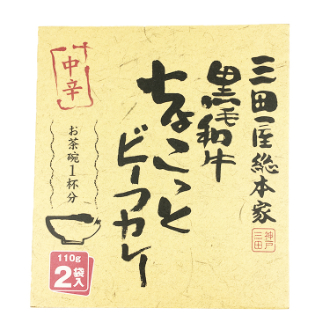 三田屋総本家
神戸
三田
黒毛和牛
ちょこっと
ビーフカレー
中辛
お茶碗1杯分
110g
2袋入